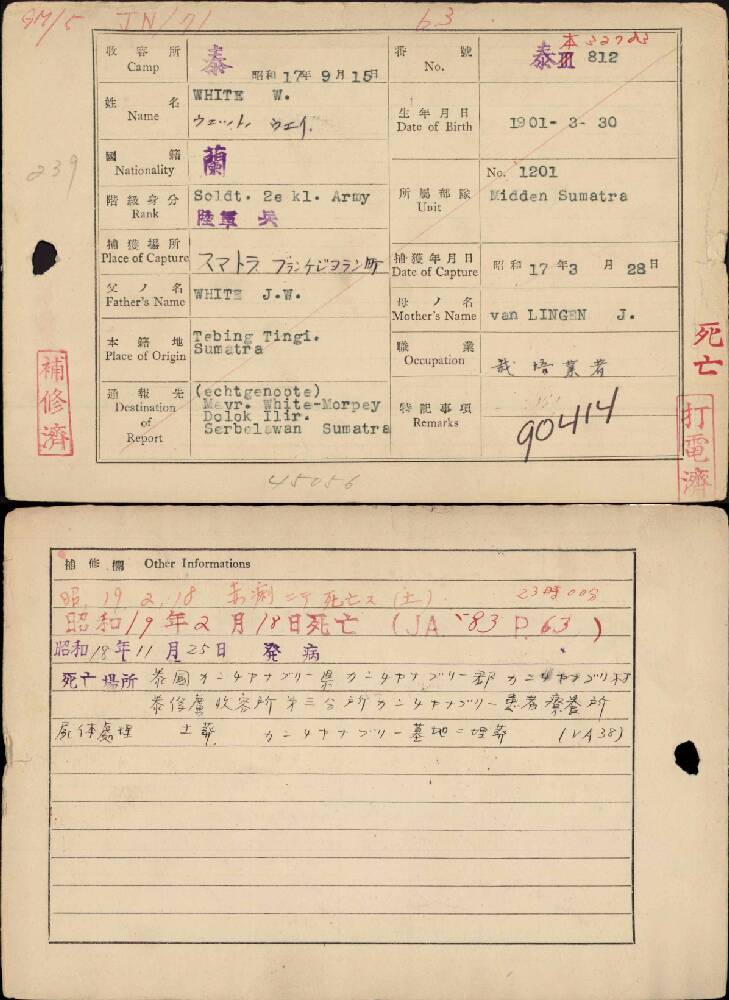 JN/71
63
收容所
Camp
泰
昭和17年9月15日
番號
No.
泰III 812
姓名
Name
WHITE W.
ウェット、ウェイ.
生年月日
Date of Birth
1901- 3- 30
239
國籍
Nationality
蘭
階級身分
Rank
Soldt. 2e kl. Army
陸軍 兵
所屬部隊
Unit
No. 1201
Midden Sumatra
捕獲場所
Place of Capture
スマトラ
捕獲年月日
Date of Capture
昭和17年3月28日
父ノ名
Father's Name
WHITE J.W.
母ノ名
Mother's Name
van LINGEN J.
本籍地
Place of Origin
Tebing Tingi.
Sumatra
職業
Occupation
栽培業者
通報先
Destination
of
Report
(echtgenoote)
Mevr. White-Morpey
Dolok Ilir.
Serbelawan Sumatra
特記事項
Remarks
90414
補修濟
死亡
打電濟
45056
補修欄 Other Informations
昭.19.2.18 赤痢ニテ死亡ス(土).
23時00分
昭和19年2月18日死亡 (JA.-83 P.63)
昭和18年11月25日 発病
死亡場所 泰國カンチヤナブリー県カンチヤナブリー郡カンチヤナブリ村
泰俘虜收容所第三分所カンチヤナブリー患者療養所
屍体處理 土葬 カンチヤナブリー墓地ニ埋葬 (VA38)